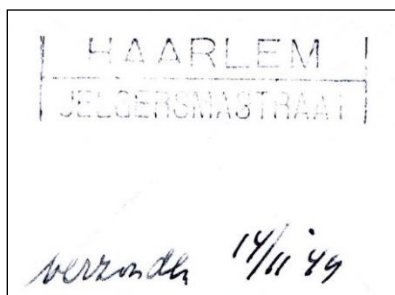 HAARLEM
JELGERSMASTRAAT
verzonden 14/11 '49